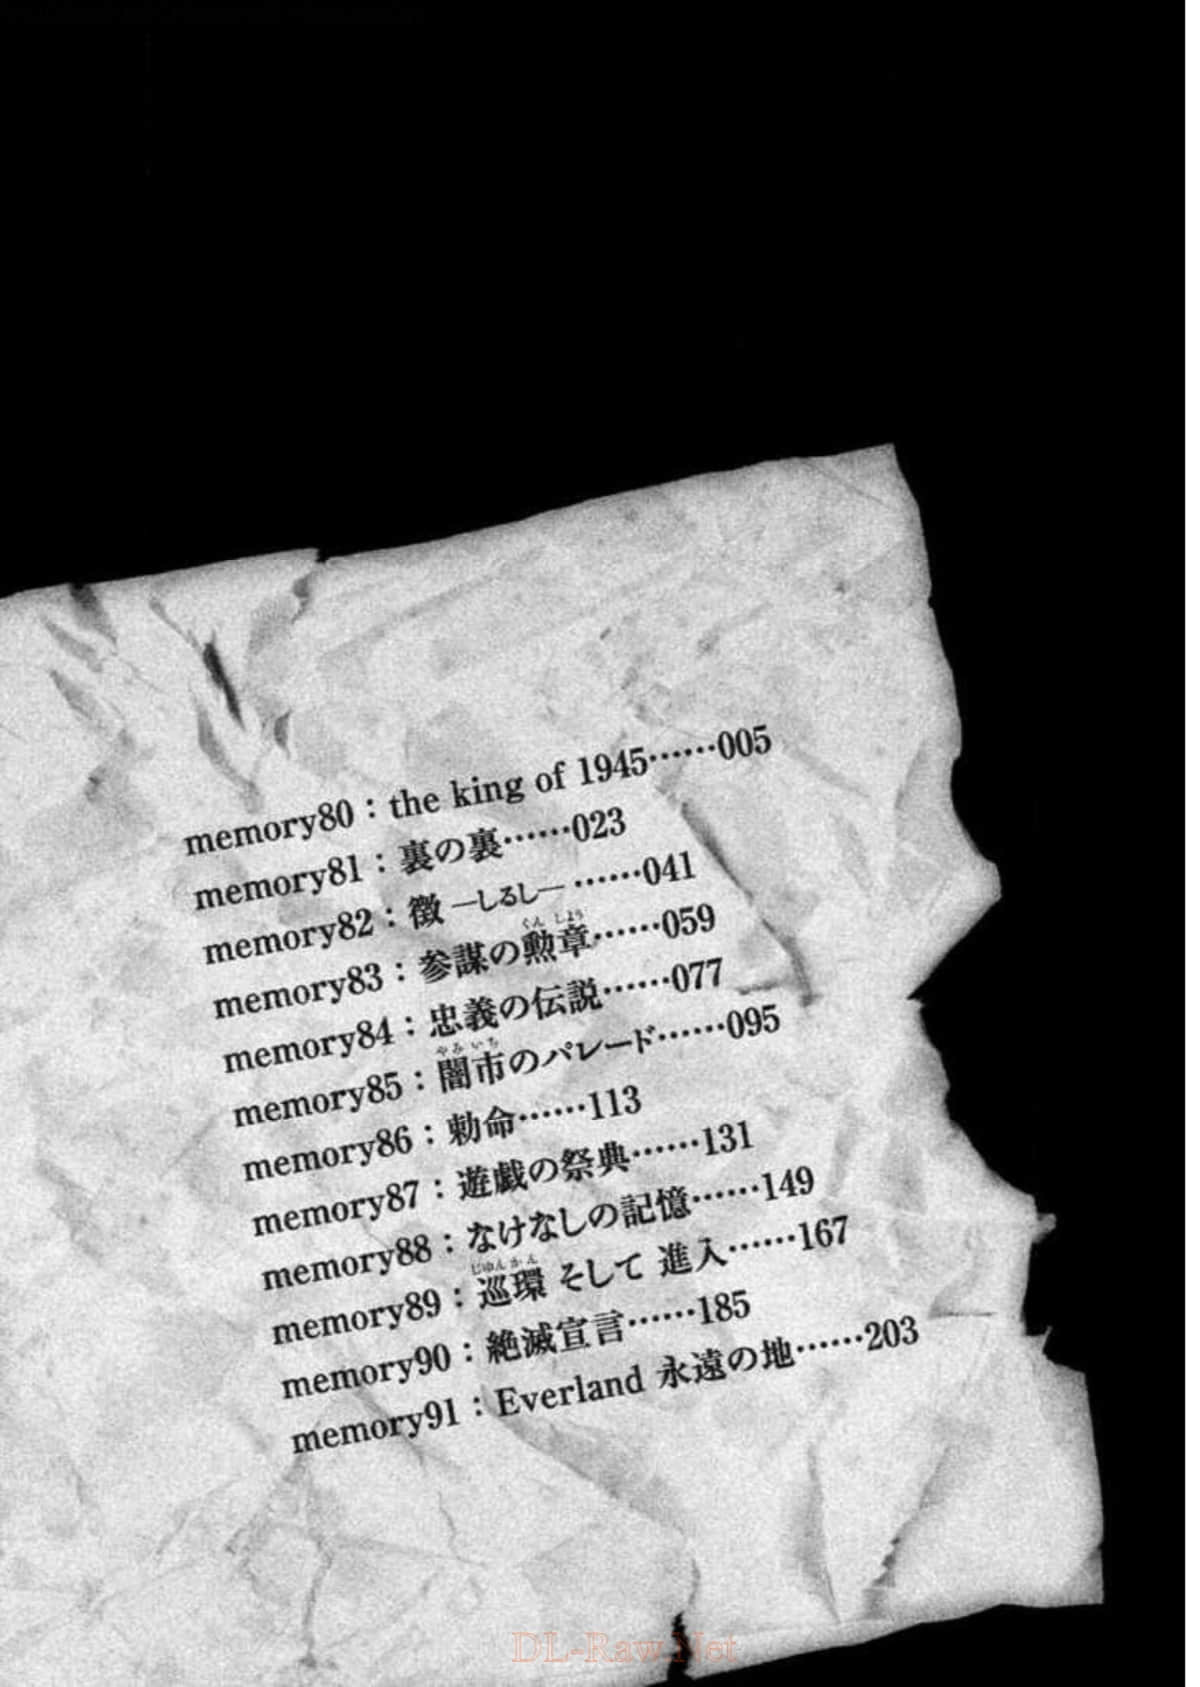 memory80：the king of 1945……005
memory81：裏の裏……023
memory82：徴 ―しるし― ……041
ぐんしょう
memory83：参謀の勲章……059
memory84：忠義の伝説……077
やみいち
memory85：闇市のパレード……095
memory86：勅命……113
memory87：遊戯の祭典……131
memory88：なけなしの記憶……149
じゅんかん
memory89：巡環 そして 進入……167
memory90：絶滅宣言……185
memory91：Everland 永遠の地……203
DL-Raw.Net